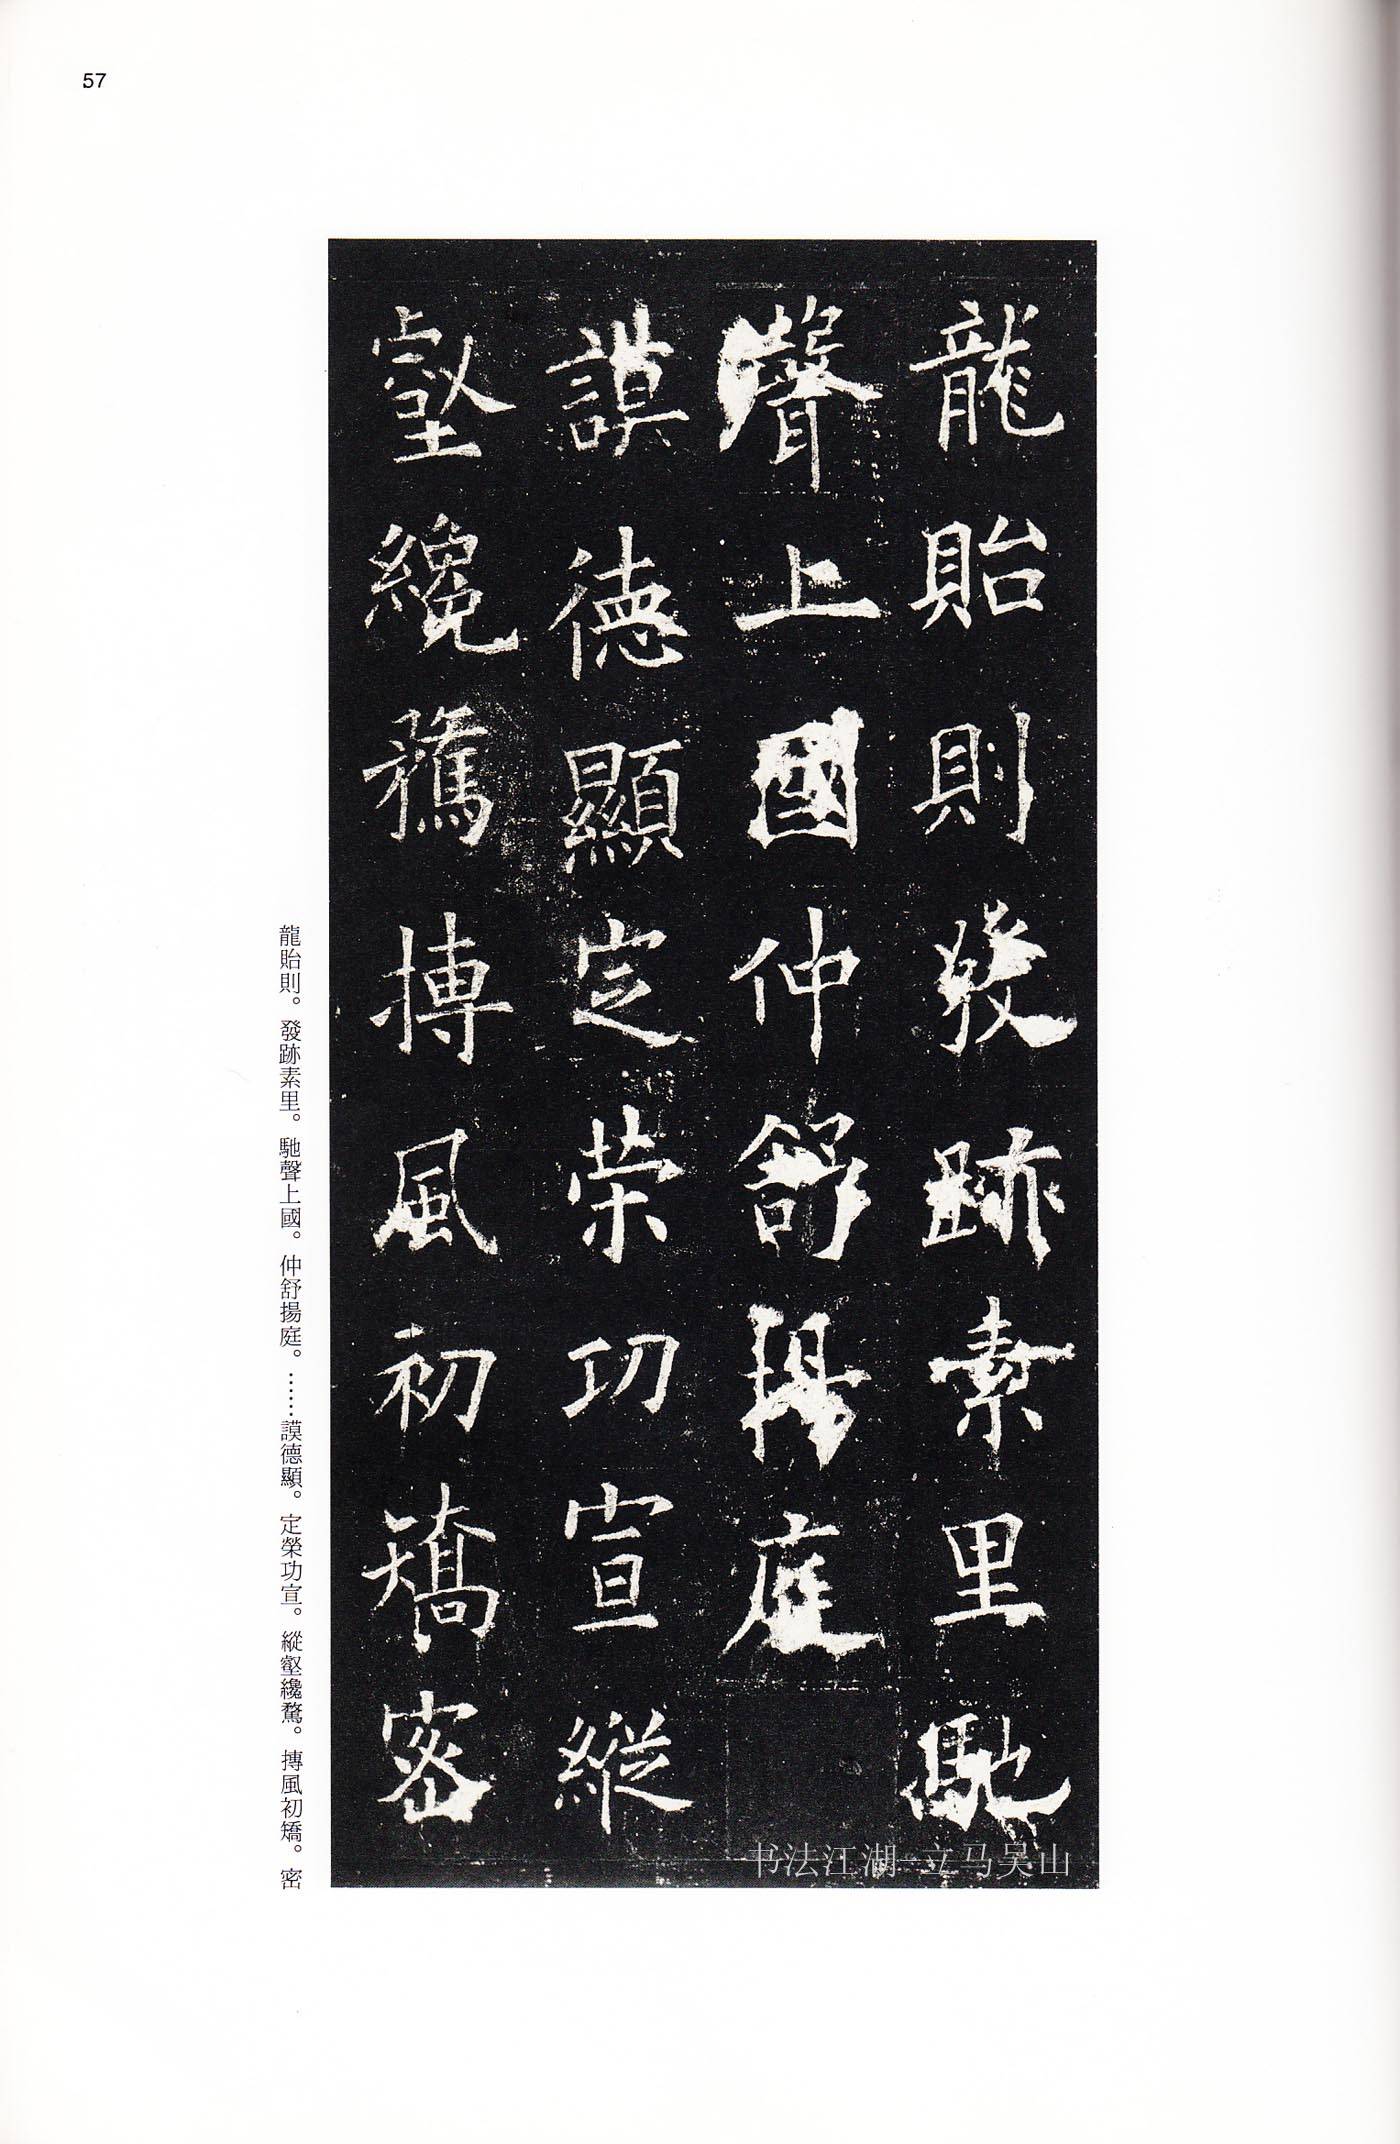 57
龍貽則發跡素里馳
聲上國仲舒揚庭
謨德顯定榮功宣縱
壑纔騖摶風初矯密
龍貽則。發跡素里。馳聲上國。仲舒揚庭。……謨德顯。定榮功宣。縱壑纔騖。摶風初矯。密
书法江湖-立马吴山